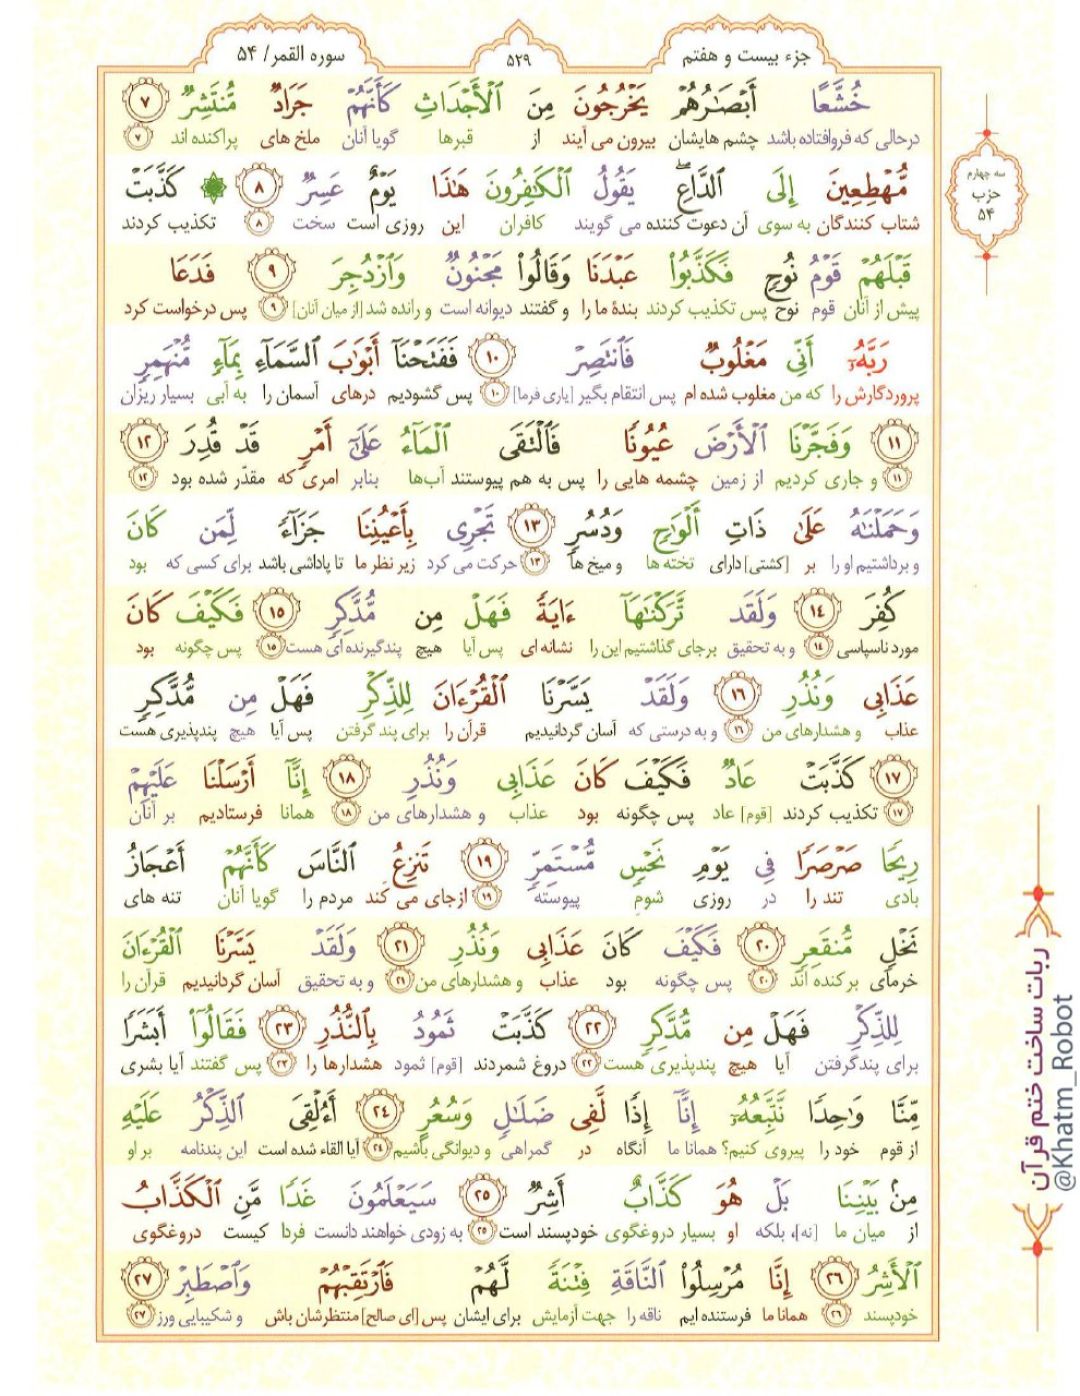 جزء بیست و هفتم
۵۲۹
سوره القمر/ ۵۴
خُشَّعًا أَبْصَـٰرُهُمْ يَخْرُجُونَ مِنَ ٱلْأَجْدَاثِ كَأَنَّهُمْ جَرَادٌ مُّنتَشِرٌ ٧
درحالی که فروافتاده باشد چشم هایشان بیرون می آیند از قبرها گویا آنان ملخ های پراکنده اند ٧
مُّهْطِعِينَ إِلَى ٱلدَّاعِ ۖ يَقُولُ ٱلْكَـٰفِرُونَ هَـٰذَا يَوْمٌ عَسِرٌ ٨ كَذَّبَتْ
شتاب کنندگان به سوی آن دعوت کننده می گویند کافران این روزی است سخت ٨ تکذیب کردند
قَبْلَهُمْ قَوْمُ نُوحٍ فَكَذَّبُوا۟ عَبْدَنَا وَقَالُوا۟ مَجْنُونٌ وَٱزْدُجِرَ ٩ فَدَعَا
پیش از آنان قوم نوح پس تکذیب کردند بندهٔ ما را و گفتند دیوانه است و رانده شد [از میان آنان] ٩ پس درخواست کرد
رَبَّهُۥٓ أَنِّى مَغْلُوبٌ فَٱنتَصِرْ ١٠ فَفَتَحْنَآ أَبْوَٰبَ ٱلسَّمَآءِ بِمَآءٍ مُّنْهَمِرٍ
پروردگارش را که من مغلوب شده ام پس انتقام بگیر [یاری فرما] ١٠ پس گشودیم درهای آسمان را به آبی بسیار ریزان
١١ وَفَجَّرْنَا ٱلْأَرْضَ عُيُونًا فَٱلْتَقَى ٱلْمَآءُ عَلَىٰٓ أَمْرٍ قَدْ قُدِرَ ١٢
١١ و جاری کردیم از زمین چشمه هایی را پس به هم پیوستند آب‌ها بنابر امری که مقدّر شده بود ١٢
وَحَمَلْنَـٰهُ عَلَىٰ ذَاتِ أَلْوَٰحٍ وَدُسُرٍ ١٣ تَجْرِى بِأَعْيُنِنَا جَزَآءً لِّمَن كَانَ
و برداشتیم او را بر [کشتی] دارای تخته ها و میخ ها ١٣ حرکت می کرد زیر نظر ما تا پاداشی باشد برای کسی که بود
كُفِرَ ١٤ وَلَقَد تَّرَكْنَـٰهَآ ءَايَةً فَهَلْ مِن مُّدَّكِرٍ ١٥ فَكَيْفَ كَانَ
مورد ناسپاسی ١٤ و به تحقیق برجای گذاشتیم این را نشانه ای پس آیا هیچ پندگیرنده ای هست ١٥ پس چگونه بود
عَذَابِى وَنُذُرِ ١٦ وَلَقَدْ يَسَّرْنَا ٱلْقُرْءَانَ لِلذِّكْرِ فَهَلْ مِن مُّدَّكِرٍ
عذاب و هشدارهای من ١٦ و به درستی که آسان گردانیدیم قرآن را برای پند گرفتن پس آیا هیچ پندپذیری هست
١٧ كَذَّبَتْ عَادٌ فَكَيْفَ كَانَ عَذَابِى وَنُذُرِ ١٨ إِنَّآ أَرْسَلْنَا عَلَيْهِمْ
١٧ تکذیب کردند [قوم] عاد پس چگونه بود عذاب و هشدارهای من ١٨ همانا فرستادیم بر آنان
رِيحًا صَرْصَرًا فِى يَوْمِ نَحْسٍ مُّسْتَمِرٍّ ١٩ تَنزِعُ ٱلنَّاسَ كَأَنَّهُمْ أَعْجَازُ
بادی تند را در روزی شوم پیوسته ١٩ ازجای می کَند مردم را گویا آنان تنه های
نَخْلٍ مُّنقَعِرٍ ٢٠ فَكَيْفَ كَانَ عَذَابِى وَنُذُرِ ٢١ وَلَقَدْ يَسَّرْنَا ٱلْقُرْءَانَ
خرمای برکنده اند ٢٠ پس چگونه بود عذاب و هشدارهای من ٢١ و به تحقیق آسان گردانیدیم قرآن را
لِلذِّكْرِ فَهَلْ مِن مُّدَّكِرٍ ٢٢ كَذَّبَتْ ثَمُودُ بِٱلنُّذُرِ ٢٣ فَقَالُوٓا۟ أَبَشَرًا
برای پندگرفتن آیا هیچ پندپذیری هست ٢٢ دروغ شمردند [قوم] ثمود هشدارها را ٢٣ پس گفتند آیا بشری
مِّنَّا وَٰحِدًا نَّتَّبِعُهُۥٓ إِنَّآ إِذًا لَّفِى ضَلَـٰلٍ وَسُعُرٍ ٢٤ أَءُلْقِىَ ٱلذِّكْرُ عَلَيْهِ
از قوم خود را پیروی کنیم؟ همانا ما آنگاه در گمراهی و دیوانگی باشیم ٢٤ آیا القاء شده است این پندنامه بر او
مِنۢ بَيْنِنَا بَلْ هُوَ كَذَّابٌ أَشِرٌ ٢٥ سَيَعْلَمُونَ غَدًا مَّنِ ٱلْكَذَّابُ
از میان ما [نه]، بلکه او بسیار دروغگوی خودپسند است ٢٥ به زودی خواهند دانست فردا کیست دروغگوی
ٱلْأَشِرُ ٢٦ إِنَّا مُرْسِلُوا۟ ٱلنَّاقَةِ فِتْنَةً لَّهُمْ فَٱرْتَقِبْهُمْ وَٱصْطَبِرْ ٢٧
خودپسند ٢٦ همانا ما فرستنده ایم ناقه را جهت آزمایش برای ایشان پس [ای صالح] منتظرشان باش و شکیبایی ورز ٢٧
سه چهارم
حزب
۵۴
ربات ساخت ختم قرآن
@Khatm_Robot